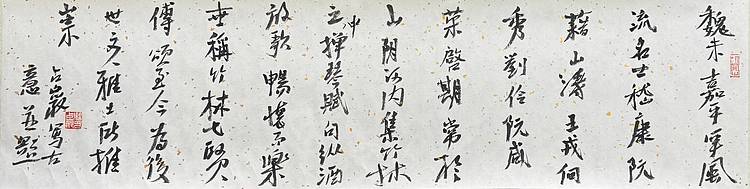 魏末嘉平年风
流名士嵇康阮
籍山涛王戎向
秀刘伶阮咸
荣启期常于
山阴河内集竹林
之中
弹琴赋句纵酒
放歌畅情不乐
世称竹林七贤
传颂至今为后
世文人雅士所推
崇
占岩写古
意并题